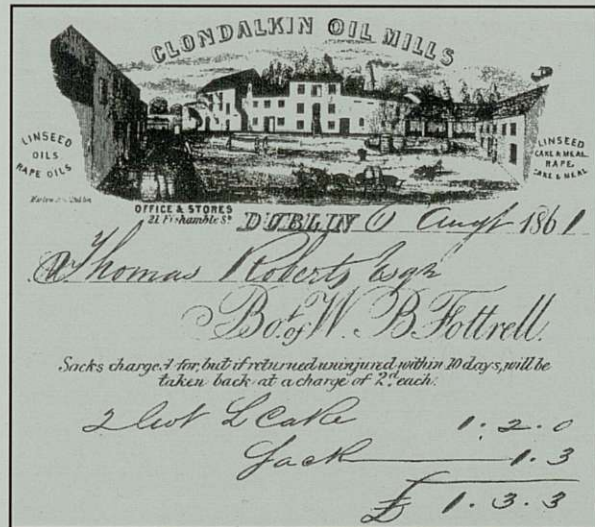 CLONDALKIN OIL MILLS
LINSEED
OILS
RAPE OILS
LINSEED
CAKE & MEAL
RAPE
CAKE & MEAL
OFFICE & STORES
21 Fishamble St
DUBLIN 6 Augt 1861
Thomas Roberts Esqr
Bot. of W. B. Fottrell.
Sacks charged for, but if returned uninjured within 10 days, will be
taken back at a charge of 2d each.
2 Cwt L Cake 1. 2. 0
Sack 1. 3
£ 1. 3. 3